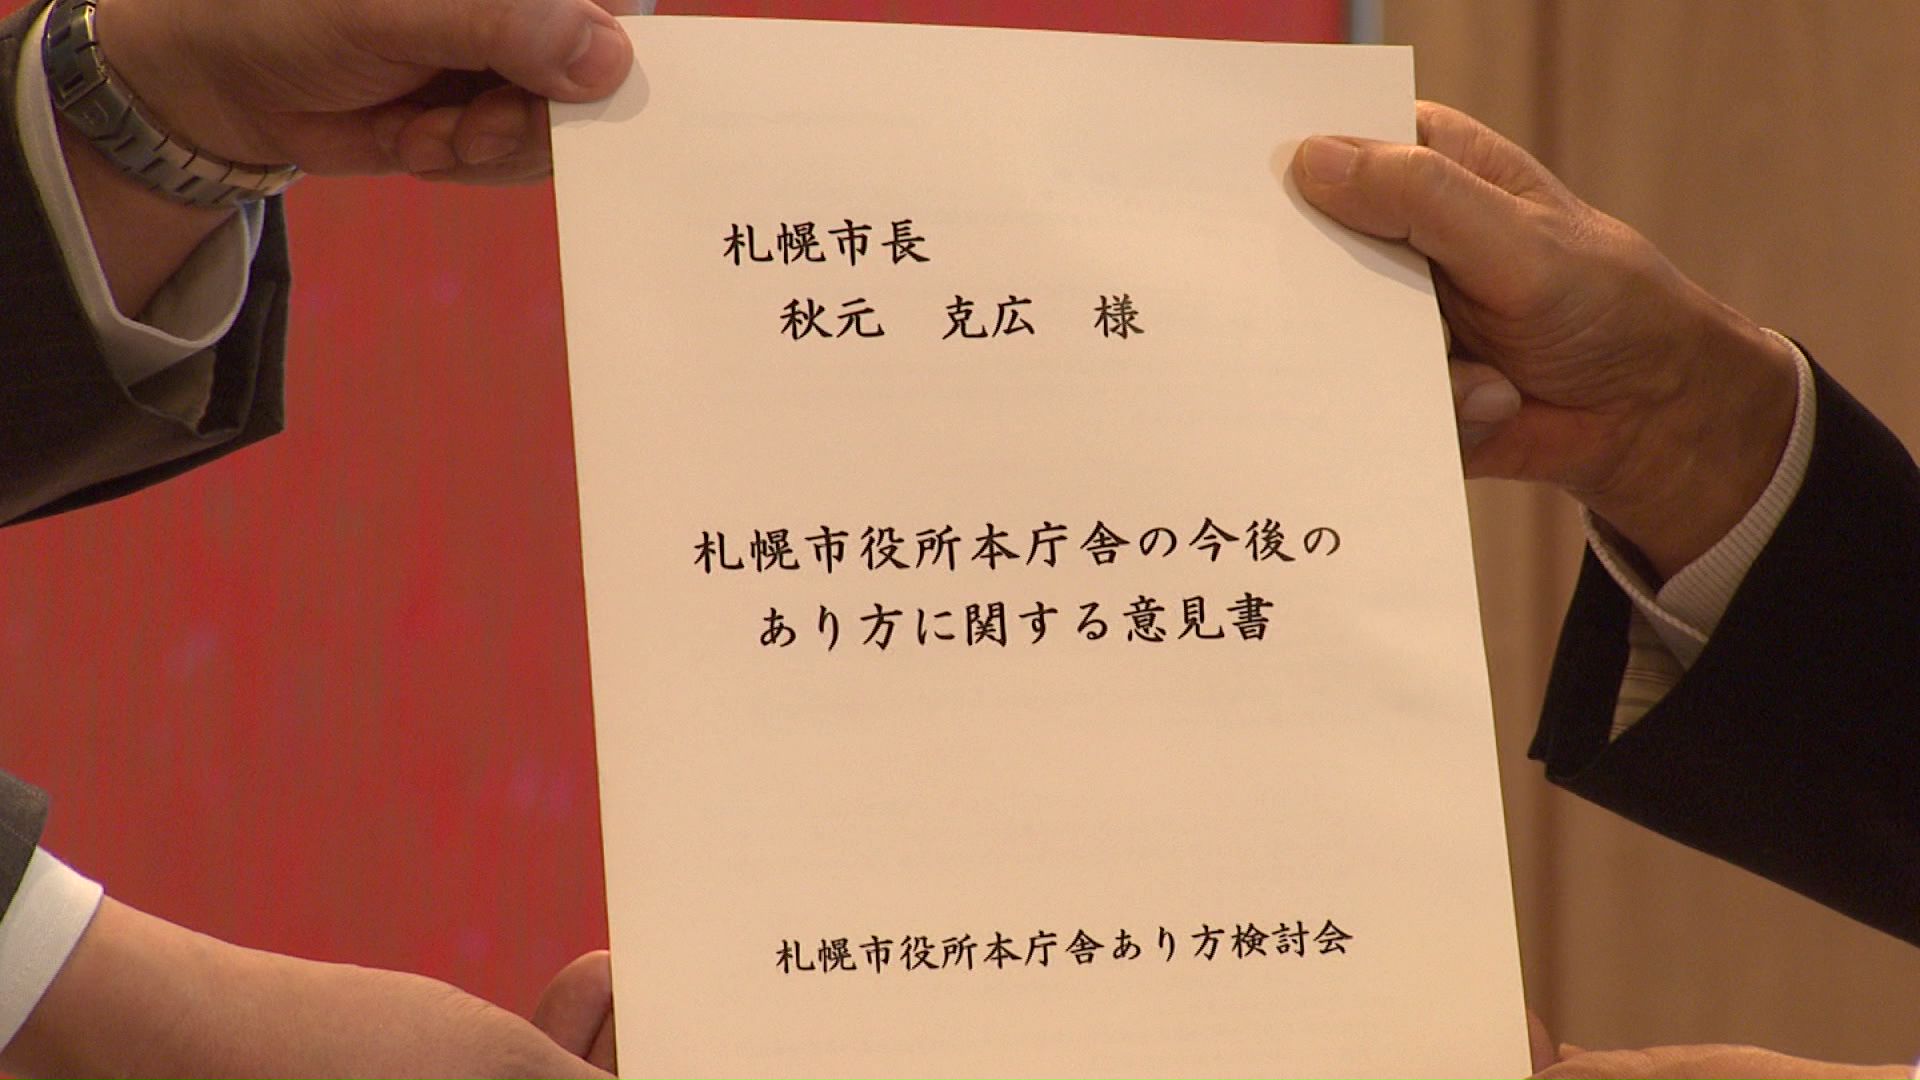 札幌市長
秋元　克広　様
札幌市役所本庁舎の今後の
あり方に関する意見書
札幌市役所本庁舎あり方検討会